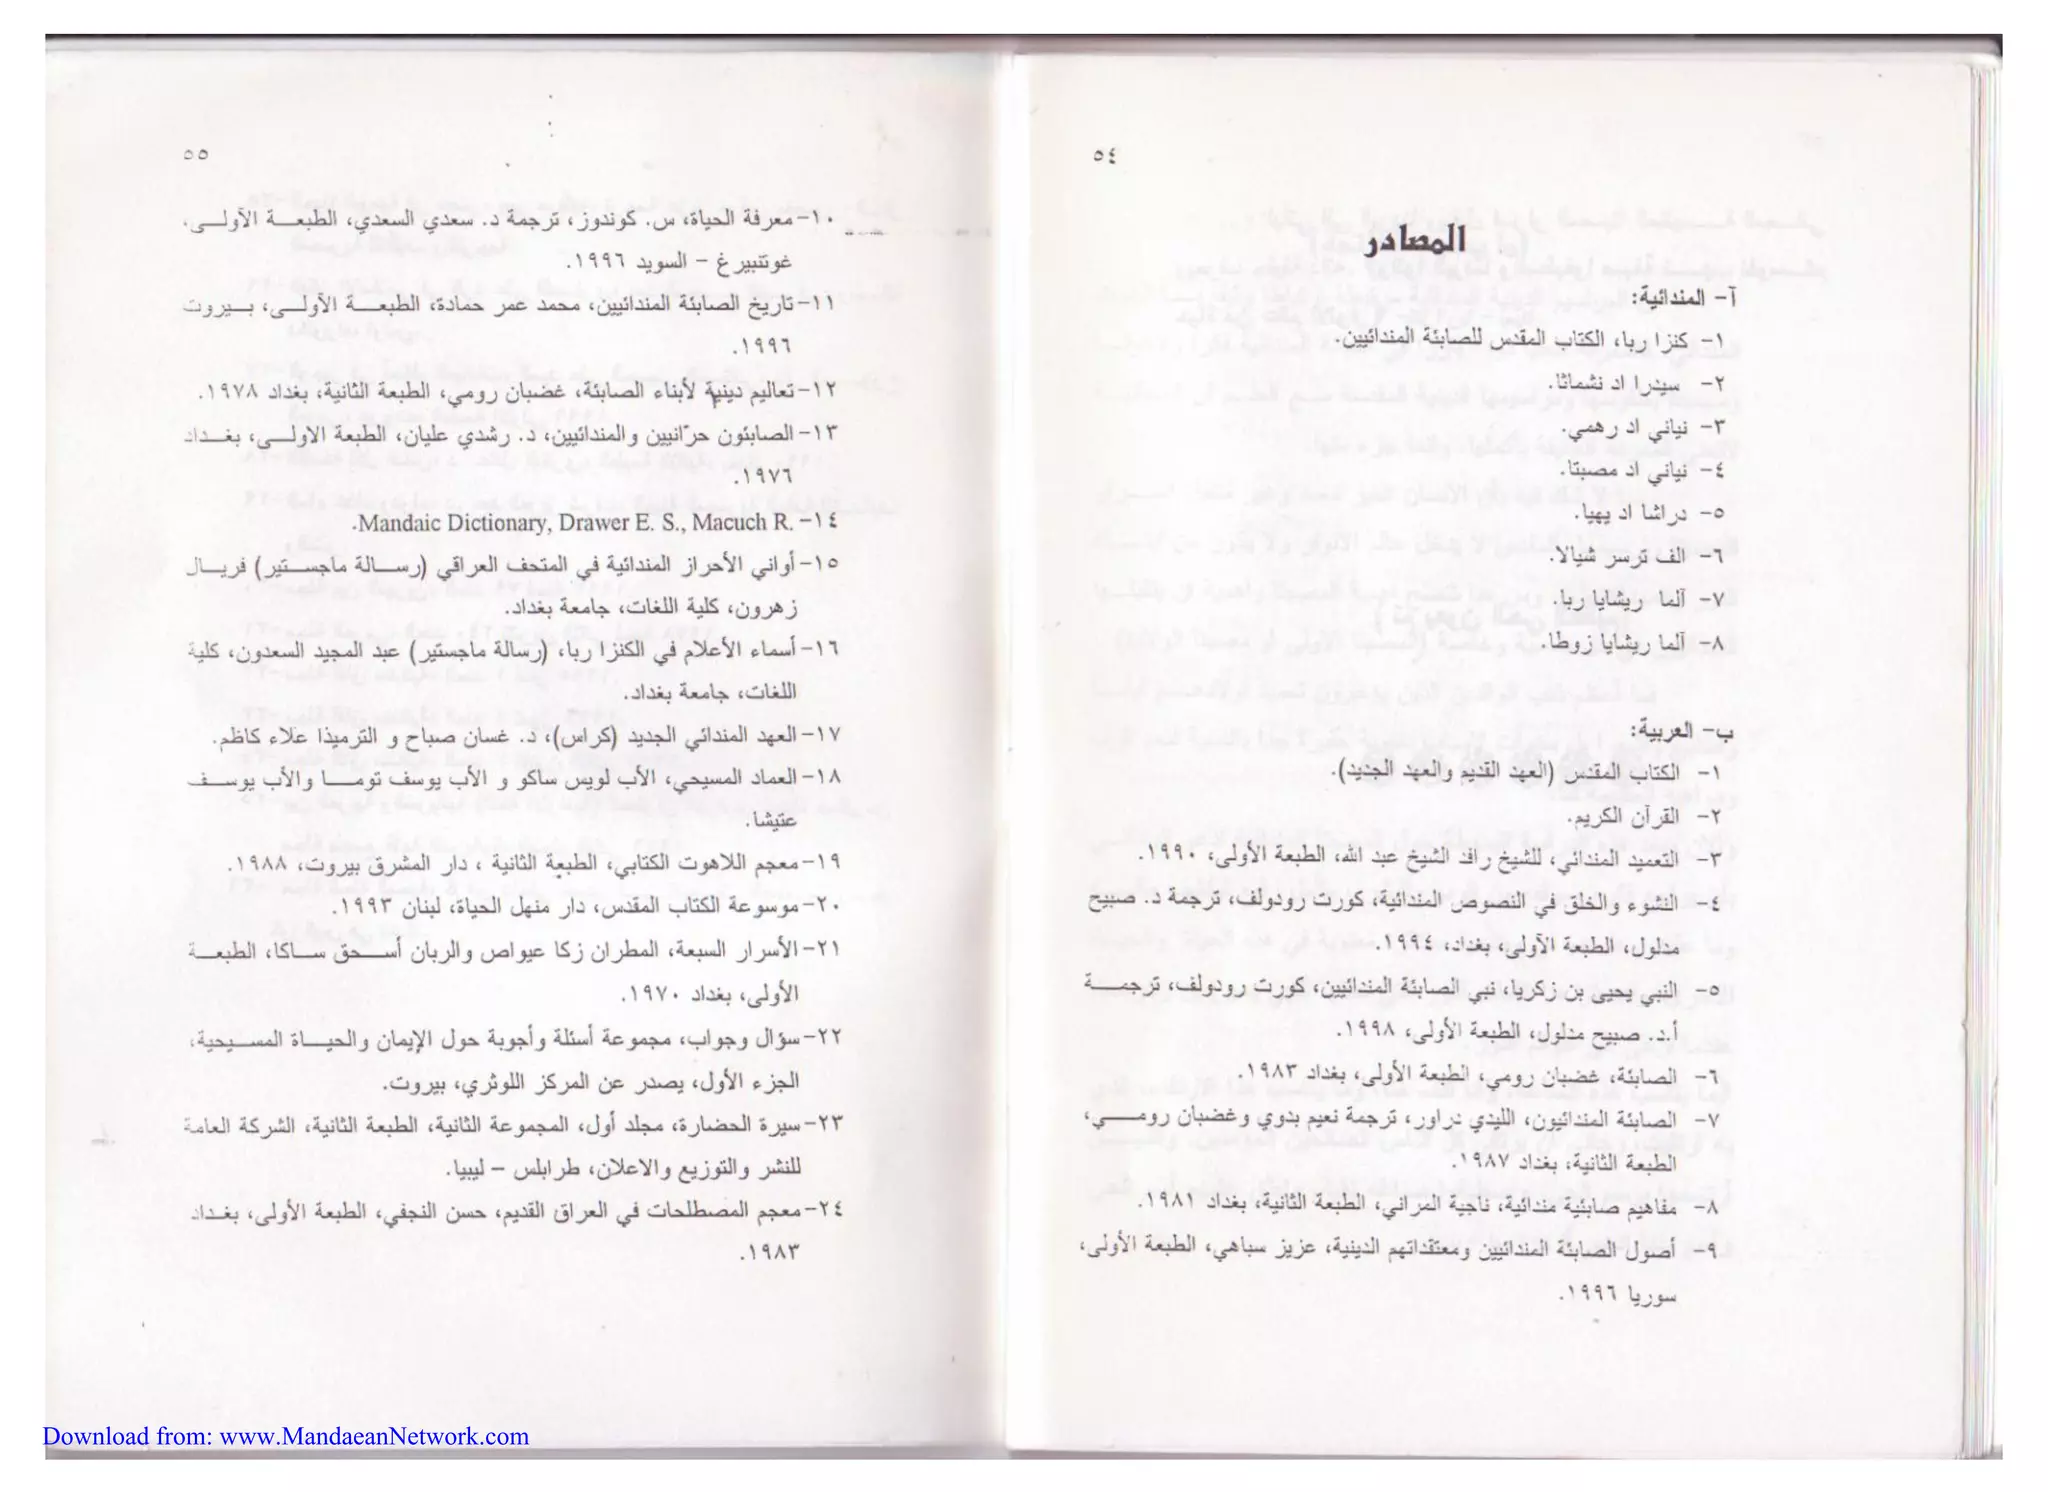 ٥٤
المصادر
آ- المندائية:
١- كنزا ربا، الكتاب المقدس للصابئة المندائيين.
٢- سيدرا اد نشماثا.
٣- نياني اد رهمي.
٤- نياني اد مصبتا.
٥- دراشا اد يهيا.
٦- الف ترسر شيالا.
٧- آلما ريشايا ربا.
٨- آلما ريشايا زوطا.
ب- العربية:
١- الكتاب المقدس (العهد القديم والعهد الجديد).
٢- القرآن الكريم.
٣- التعميد المندائي، للشيخ رافد الشيخ عبد الله، الطبعة الأولى، ١٩٩٠.
٤- النشوء والخلق في النصوص المندائية، كورت رودولف، ترجمة د. صبيح
مدلول، الطبعة الأولى، بغداد، ١٩٩٤.
٥- النبي يحيى بن زكريا، نبي الصابئة المندائيين، كورت رودولف، ترجمـــة
أ.د. صبيح مدلول، الطبعة الأولى، ١٩٩٨.
٦- الصابئة، غضبان رومي، الطبعة الأولى، بغداد ١٩٨٣.
٧- الصابئة المندائيون، الليدي دراور، ترجمة نعيم بدوي وغضبان رومـــي،
الطبعة الثانية، بغداد ١٩٨٧.
٨- مفاهيم صابئية مندائية، ناجية المراني، الطبعة الثانية، بغداد ١٩٨١.
٩- أصول الصابئة المندائيين ومعتقداتهم الدينية، عزيز سباهي، الطبعة الأولى،
سوريا ١٩٩٦.
٥٥
١٠-معرفة الحياة، س. كوندوز، ترجمة د. سعدي السعدي، الطبعـــة الأولـــى.
غوتتبيرغ - السويد ١٩٩٦.
١١-تاريخ الصابئة المندائيين، محمد عمر حمادة، الطبعـــة الأولـــى، بـــيروت
١٩٩٦.
١٢-تعاليم دينية لأبناء الصابئة، غضبان رومي، الطبعة الثانية، بغداد ١٩٧٨.
١٣-الصابئون حرّانيين والمندائيين، د. رشدي عليان، الطبعة الأولـــى، بغـــداد
١٩٧٦.
١٤- Mandaic Dictionary, Drawer E. S., Macuch R.
١٥-أواني الأحراز المندائية في المتحف العراقي (رســـالة ماجســـتير) فريـــال
زهرون، كلية اللغات، جامعة بغداد.
١٦-أسماء الأعلام في الكنزا ربا، (رسالة ماجستير) عبد المجيد السعدون، كلية
اللغات، جامعة بغداد.
١٧-العهد المندائي الجديد (كراس)، د. غسان صباح و الترميذا علاء كاظم.
١٨-العماد المسيحي، الأب لويس ساكو و الأب يوسف تومـــا والأب يوســـف
عتيشا.
١٩-معجم اللاهوت الكتابي، الطبعة الثانية ، دار المشرق بيروت، ١٩٨٨.
٢٠-موسوعة الكتاب المقدس، دار منهل الحياة، لبنان ١٩٩٣.
٢١-الأسرار السبعة، المطران زكا عيواص والربان أســـحق ســـاكا، الطبعـــة
الأولى، بغداد ١٩٧٠.
٢٢-سؤال وجواب، مجموعة أسئلة وأجوبة حول الإيمان والحيـــاة المســـيحية،
الجزء الأول، يصدر عن المركز اللوثري، بيروت.
٢٣-سيرة الحضارة، مجلد أول، المجموعة الثانية، الطبعة الثانية، الشركة العامة
للنشر والتوزيع والاعلان، طرابلس - ليبيا.
٢٤-معجم المصطلحات في العراق القديم، حسن النجفي، الطبعة الأولى، بغـــداد
١٩٨٣.
Download from: www.MandaeanNetwork.com